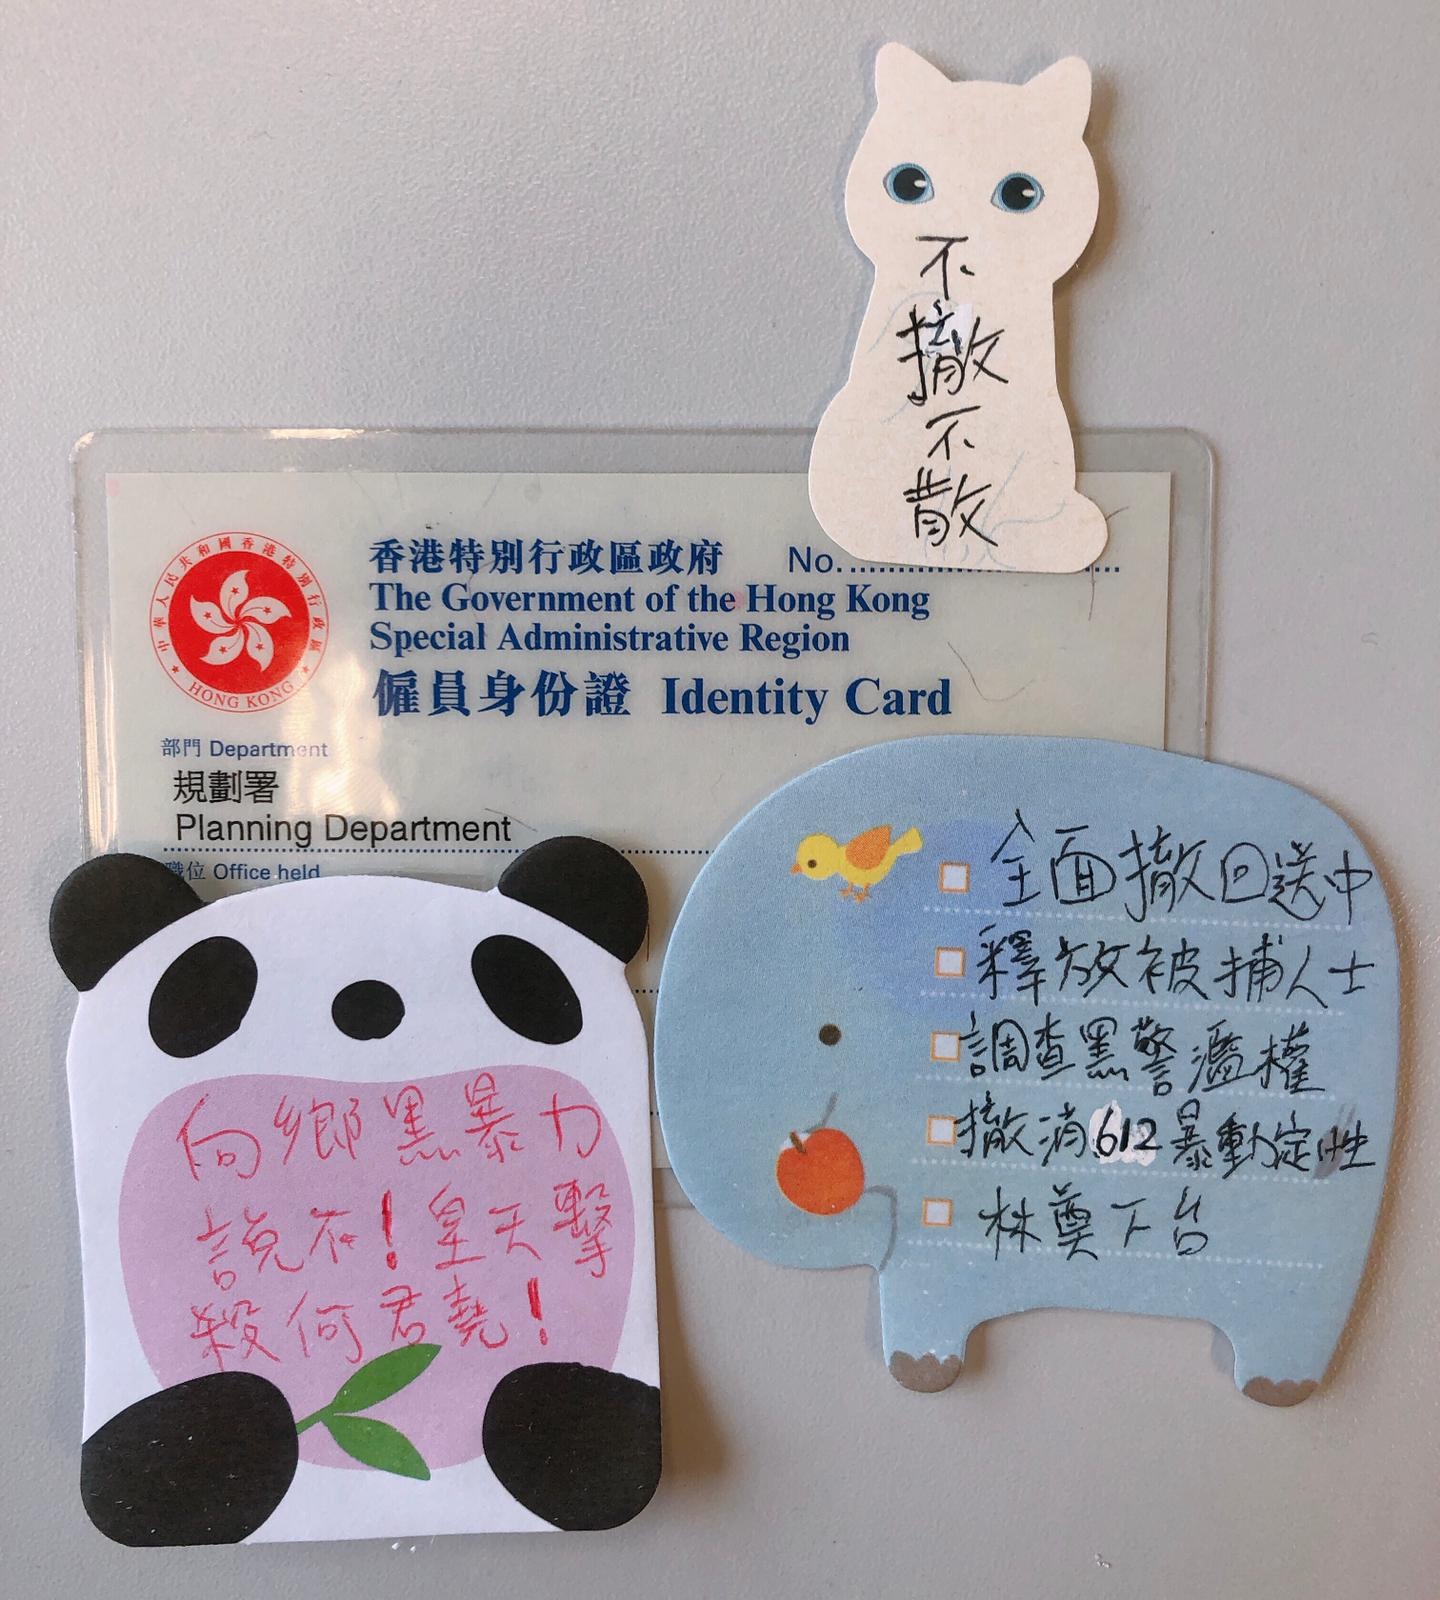 不
撤
不
散
中華人民共和國香港特別行政區
HONG KONG
香港特別行政區政府 No.
The Government of the Hong Kong
Special Administrative Region
僱員身份證 Identity Card
部門 Department
規劃署
Planning Department
職位 Office held
全面撤回送中
釋放被捕人士
調查黑警濫權
撤消612暴動定性
林奠下台
向鄉黑暴力
說不!皇天擊
殺何君堯!